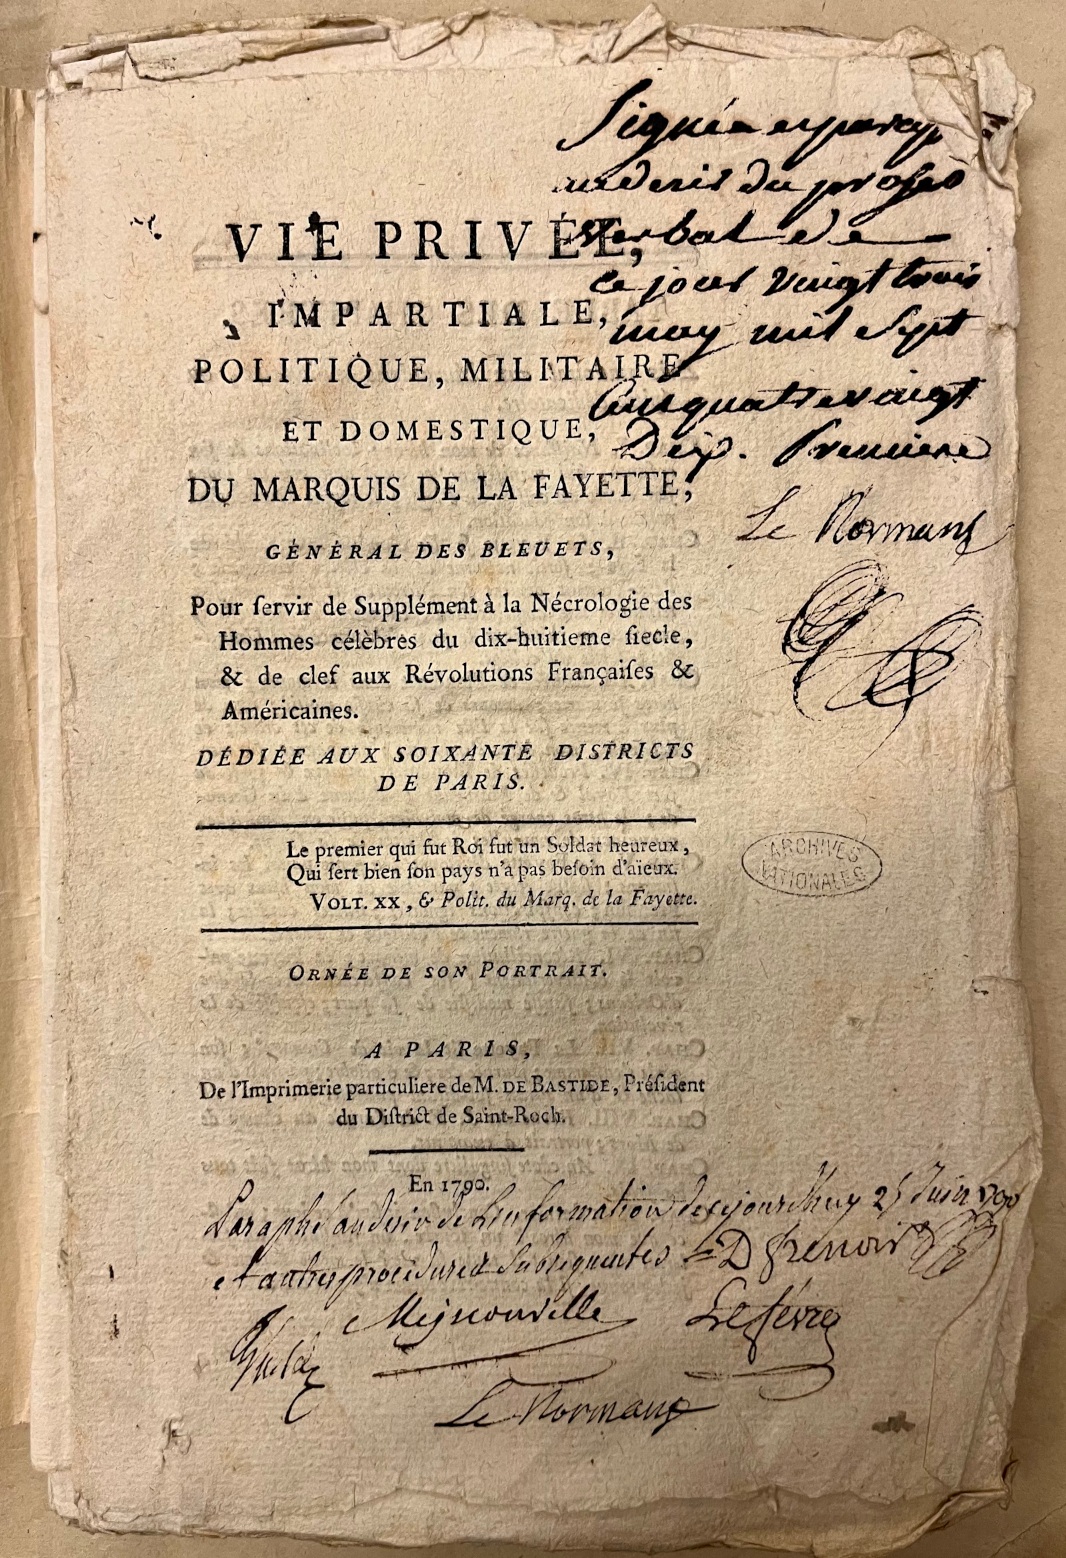 Signée et parap
au desir du proses
verbal de
ce jour vaingt trois
may mil sept
cens quatre vaingt
Dix. Premiere
Le Normand
VIE PRIVÉE,
IMPARTIALE,
POLITIQUE, MILITAIRE
ET DOMESTIQUE,
DU MARQUIS DE LA FAYETTE,
GÉNÉRAL DES BLEUETS,
Pour ſervir de Supplément à la Nécrologie des
Hommes célèbres du dix-huitieme ſiecle,
& de clef aux Révolutions Françaiſes &
Américaines.
DÉDIÉE AUX SOIXANTE DISTRICTS
DE PARIS.
Le premier qui fut Roi fut un Soldat heureux,
Qui ſert bien ſon pays n'a pas beſoin d'aïeux.
VOLT. XX, & Polit. du Marq. de la Fayette.
ARCHIVES
NATIONALES
ORNÉE DE SON PORTRAIT.
A PARIS,
De l'Imprimerie particuliere de M. DE BASTIDE, Préſident
du Diſtrict de Saint-Roch.
En 1790.
Paraphé au desir de l'information de cejourdhuy 25 Juin 1790
et autres procedures subsequentes
Mignonville Lefévre
Le Normand